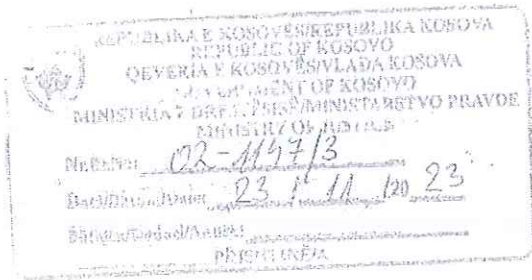 REPUBLIKA E KOSOVËS/REPUBLIKA KOSOVA
REPUBLIC OF KOSOVO
QEVERIA E KOSOVËS/VLADA KOSOVA
GOVERNMENT OF KOSOVO
MINISTRIA E DREJTËSISË/MINISTARSTVO PRAVDE
MINISTRY OF JUSTICE
02-1147/3
23 / 11 /20 23
PRISHTINË/A